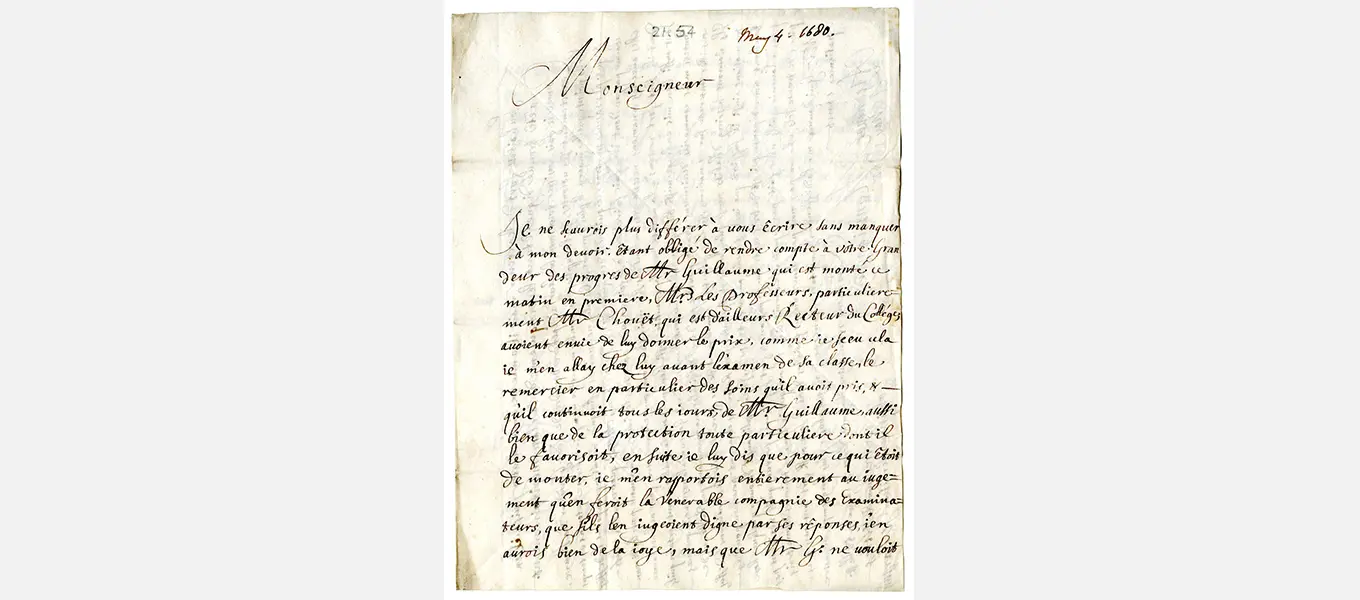 2K54
May 4. 1680.
Monseigneur
Je ne sçaurois plus différer à vous Ecrire sans manquer
à mon devoir. Etant obligé de rendre compte à vôtre Gran
deur des progres de Mr Guillaume qui est monté ce
matin en premiere, Mrs Les Professeurs, particuliere=
ment Mr Choüet qui est dailleurs Recteur du Collége
avoient envie de luy donner le prix, comme ie sceu cela
ie m'en allay chez luy avant l'examen de sa classe, le
remercier en particulier des soins qu'il avoit pris, &
qu'il continuoit tous les iours, de Mr Guillaume, aussi
bien que de la protection toute particuliere dont il
le favorisoit, en suite ie luy dis que pour ce qui êtoit
de monter, ie m'en rapportois entierement au iuge=
ment qu'en feroit la Venerable compagnie des Examina=
teurs, que s'ils l'en iugeoient digne par ses réponses, i'en
aurois bien de la ioye, mais que Mr G. ne vouloit